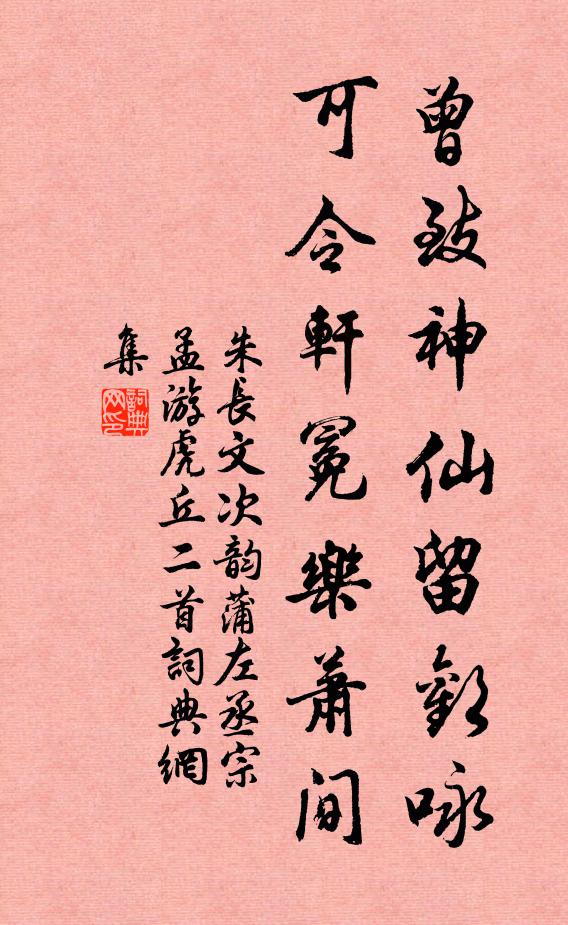 曾致神仙留歡咏
可令軒冕樂蕭間
朱長文次韵蒲左丞宗
孟游虎丘二首詞典網
集
詞典
网印